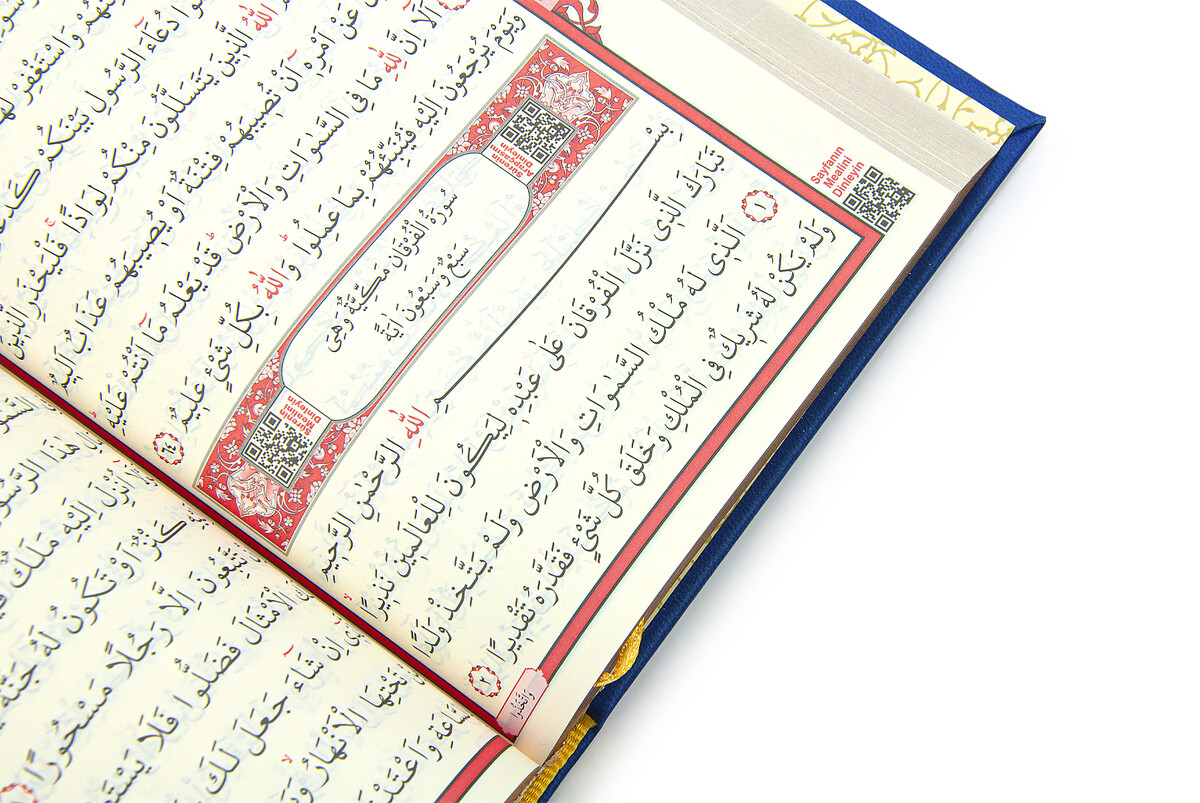 وَاسْتَغْفِرْ لَهُمُ
دُعَٓاءَ الرَّسُولِ بَيْنَكُمْ كَدُعَٓا
اللّٰهُ الَّذ۪ينَ يَتَسَلَّلُونَ مِنْكُمْ لِوَاذًاۚ فَلْيَحْذَرِ الَّذ۪ينَ
عَنْ اَمْرِه۪ٓ اَنْ تُص۪يبَهُمْ فِتْنَةٌ اَوْ يُص۪يبَهُمْ عَذَابٌ اَل۪يمٌ
اَلَٓا اِنَّ لِلّٰهِ مَا فِى السَّمٰوَاتِ وَالْاَرْضِۜ قَدْ يَعْلَمُ مَٓا اَنْتُمْ عَلَيْهِۜ
وَيَوْمَ يُرْجَعُونَ اِلَيْهِ فَيُنَبِّئُهُمْ بِمَا عَمِلُواۜ وَاللّٰهُ بِكُلِّ شَىْءٍ عَل۪يمٌ ٦٤
Sûrenin
Arapçasını
Dinleyin
سُورَةُ الْفُرْقَانِ مَكِّيَّةٌ وَهِىَ
سَبْعٌ وَسَبْعُونَ اٰيَةً
Sûrenin
Mealini
Dinleyin
Sayfanın
Mealini
Dinleyin
بِسْمِ اللّٰهِ الرَّحْمٰنِ الرَّح۪يمِ
تَبَارَكَ الَّذ۪ى نَزَّلَ الْفُرْقَانَ عَلٰى عَبْدِه۪ لِيَكُونَ لِلْعَالَم۪ينَ نَذ۪يرًاۙ
١ اَلَّذ۪ى لَهُ مُلْكُ السَّمٰوَاتِ وَالْاَرْضِ وَلَمْ يَتَّخِذْ وَلَدًا
وَلَمْ يَكُنْ لَهُ شَر۪يكٌ فِى الْمُلْكِ وَخَلَقَ كُلَّ شَىْءٍ فَقَدَّرَهُ تَقْد۪يرًا ٢
وَاتَّخَذُوا
هٰذَا الرَّسُو
اُنْزِلَ اِلَيْهِ مَلَكٌ
كَنْزٌ اَوْ تَكُونُ لَهُ جَنَّةٌ
تَتَّبِعُونَ اِلَّا رَجُلًا مَسْحُورًا
الْاَمْثَالَ فَضَلُّوا فَلَا يَسْتَ
اِنْ شَٓاءَ جَعَلَ لَكَ
تَحْتِهَا الْاَنْهَارُۙ
وَاَعْتَدْ